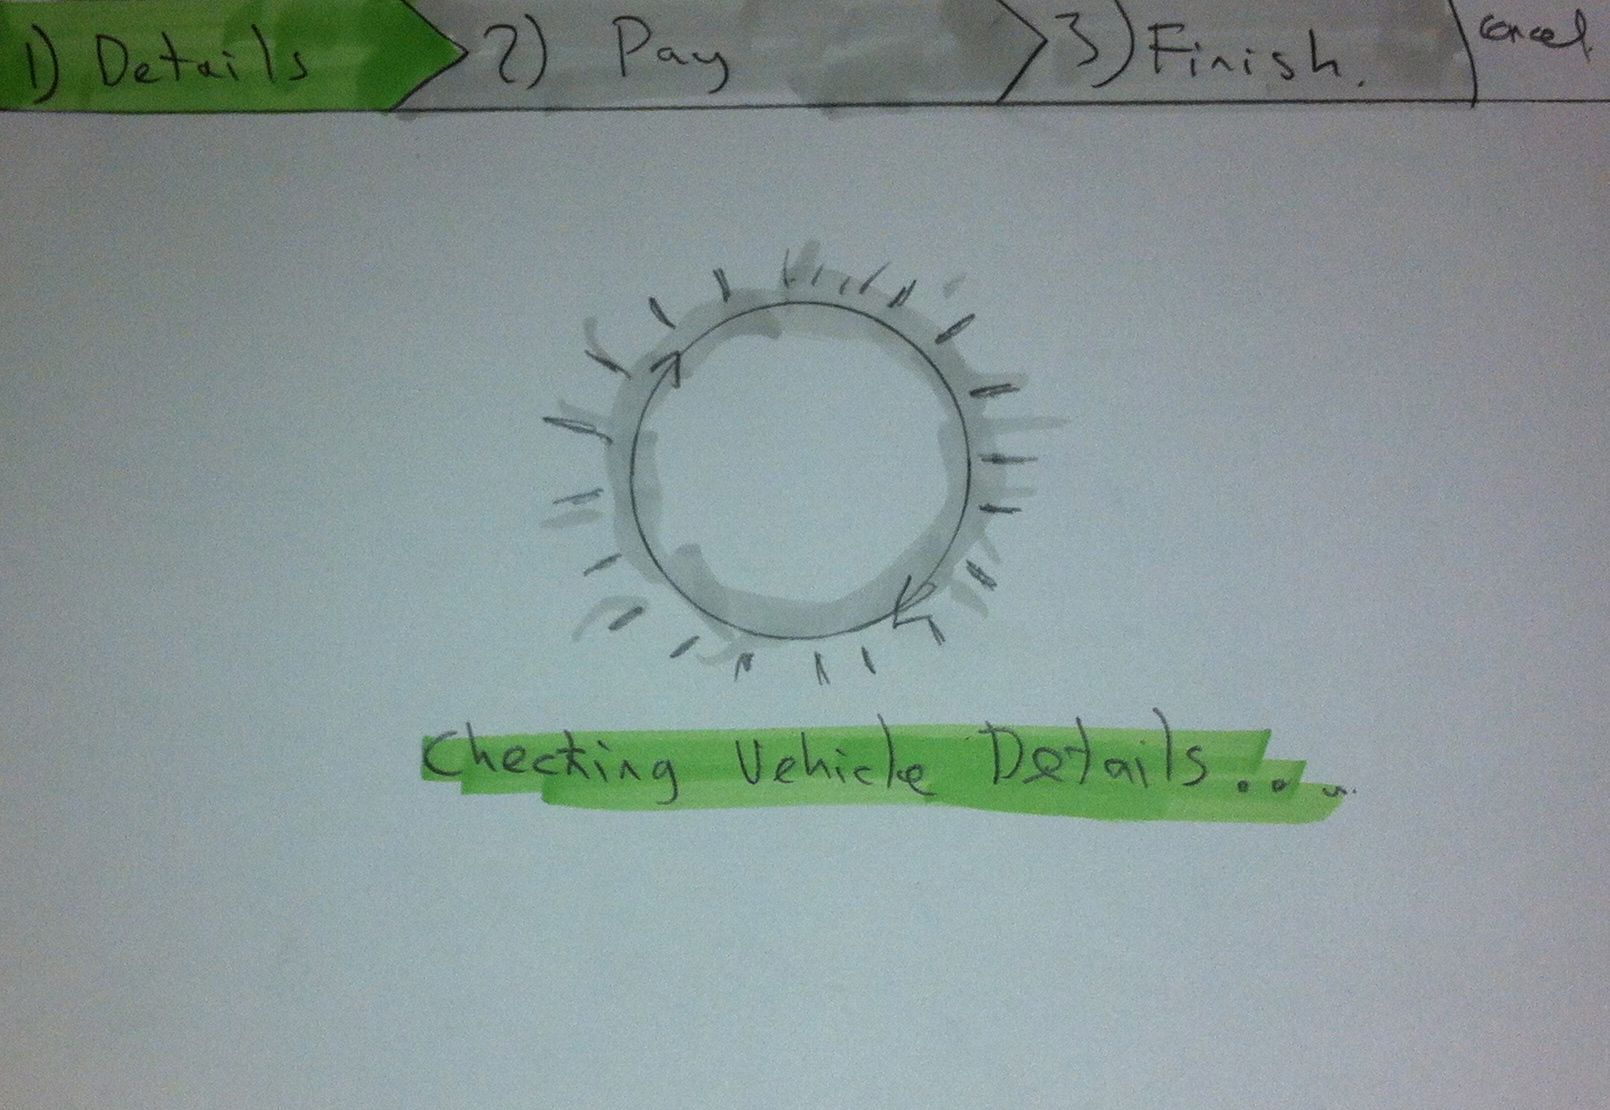 1) Details 2) Pay 3) Finish. cancel.
Checking Vehicle Details....